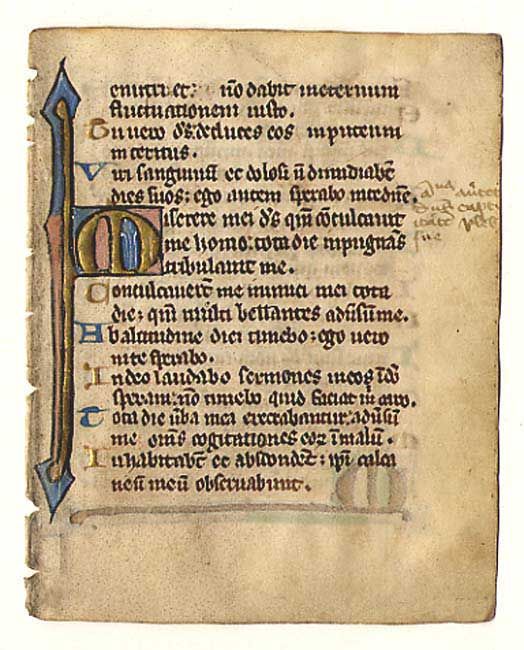 enutriet: nō dabit ineternum
fluctuationem iusto.
Tu uero d̄s deduces eos inputeum
interitus.
Viri sanguinū et dolosi n̄ dimidiabūt
dies suos: ego autem sperabo intedn̄e.
Miserere mei d̄s qm̄ cōculcauit
me homo: tota die inpugnās
tribulauit me.
Conculcauerūt me inimici mei tota
die: qm̄ multi bellantes aduſum me.
Ab altitudine diei timebo: ego uero
inte sperabo.
In deo laudabo sermones meos ī dō
speraui: nō timebo quid faciat m̄ caro.
Tota die ūba mea execrabantur: aduſū
me om̄s cogitationes eoꝝ ī malū.
Inhabitabūt et abscondēt: ip̄i calca
neū meū obseruabunt.